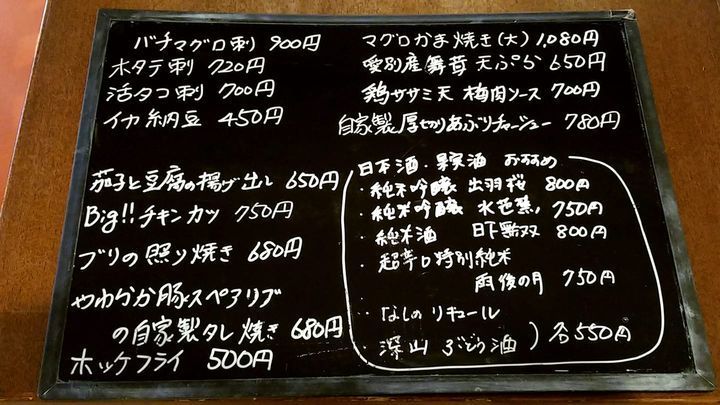 バチマグロ刺 900円
ホタテ刺 720円
活タコ刺 700円
イカ納豆 450円
茄子と豆腐の揚げ出し 650円
Big!!チキンカツ 750円
ブリの照り焼き 680円
やわらか豚スペアリブ
の自家製タレ焼き 680円
ホッケフライ 500円
マグロかま焼き(大) 1,080円
愛別産舞茸天ぷら 650円
鶏ササミ天 梅肉ソース 700円
自家製厚切りあぶりチャーシュー 780円
日本酒・果実酒 おすすめ
・純米吟醸 出羽桜 800円
・純米吟醸 水芭蕉 750円
・純米酒 日下無双 800円
・超辛口特別純米
雨後の月 750円
・なしのリキュール
・深山ぶどう酒 ) 各550円